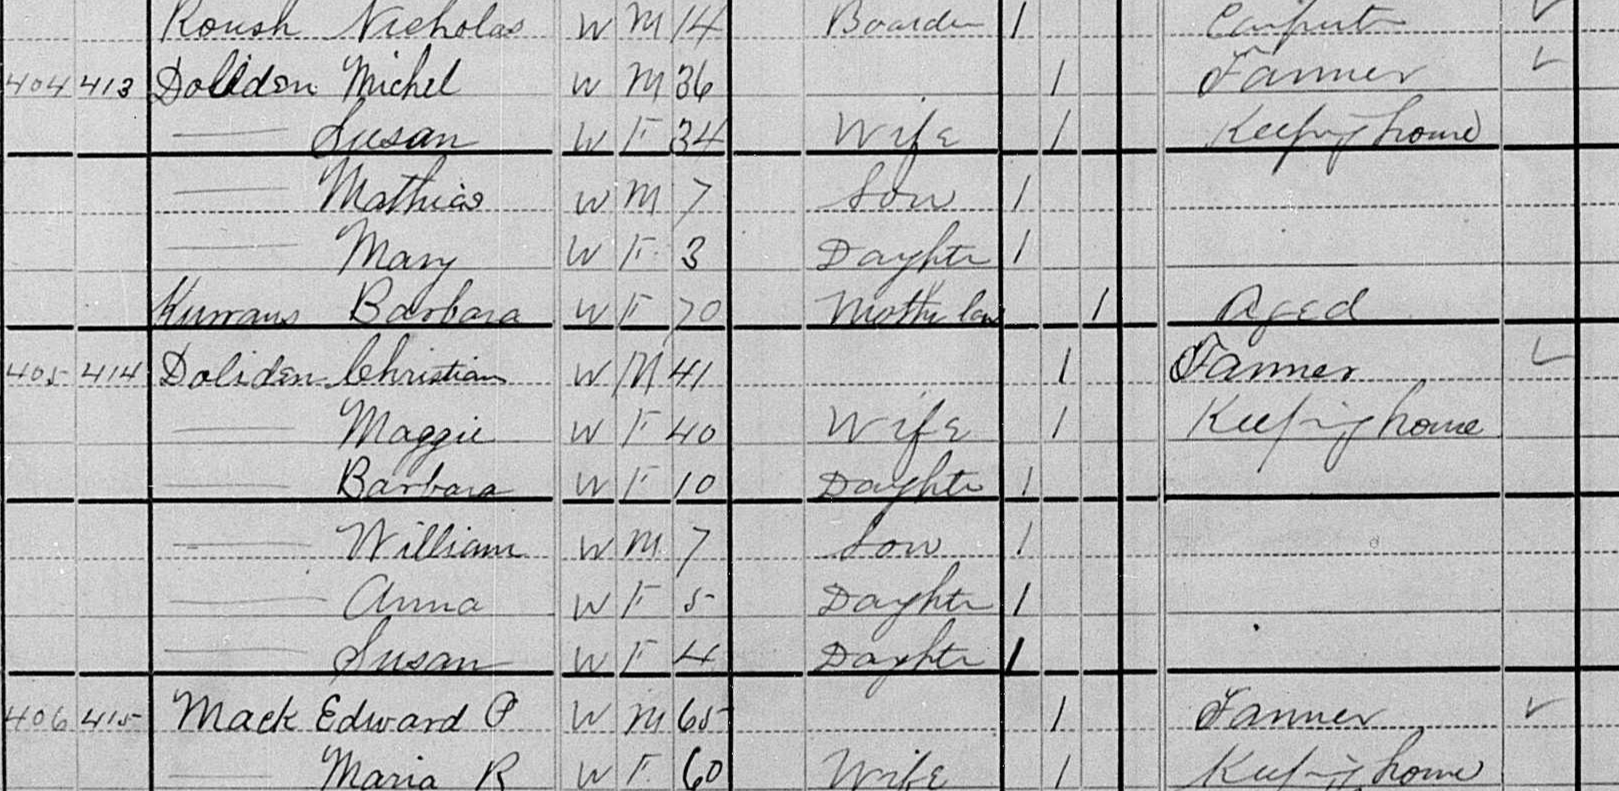 Roush Nicholas W M 14 Boarder 1
404 413 Doliden Michel W M 36 1 Farmer
Susan W F 34 Wife 1 Keeping house
Mathias W M 7 Son 1
Mary W F 3 Daughter 1
Barbara W F 70 Mothe law 1 Aged
405 414 Doliden Christian W M 41 1 Farmer
Maggie W F 40 Wife 1 Keeping house
Barbara W F 10 Daughter 1
William W M 7 Son 1
Anna W F 5 Daughter 1
Susan W F 4 Daughter 1
406 415 Mack Edward P W M 65 1 Farmer
Maria R W F 60 Wife 1 Keeping house